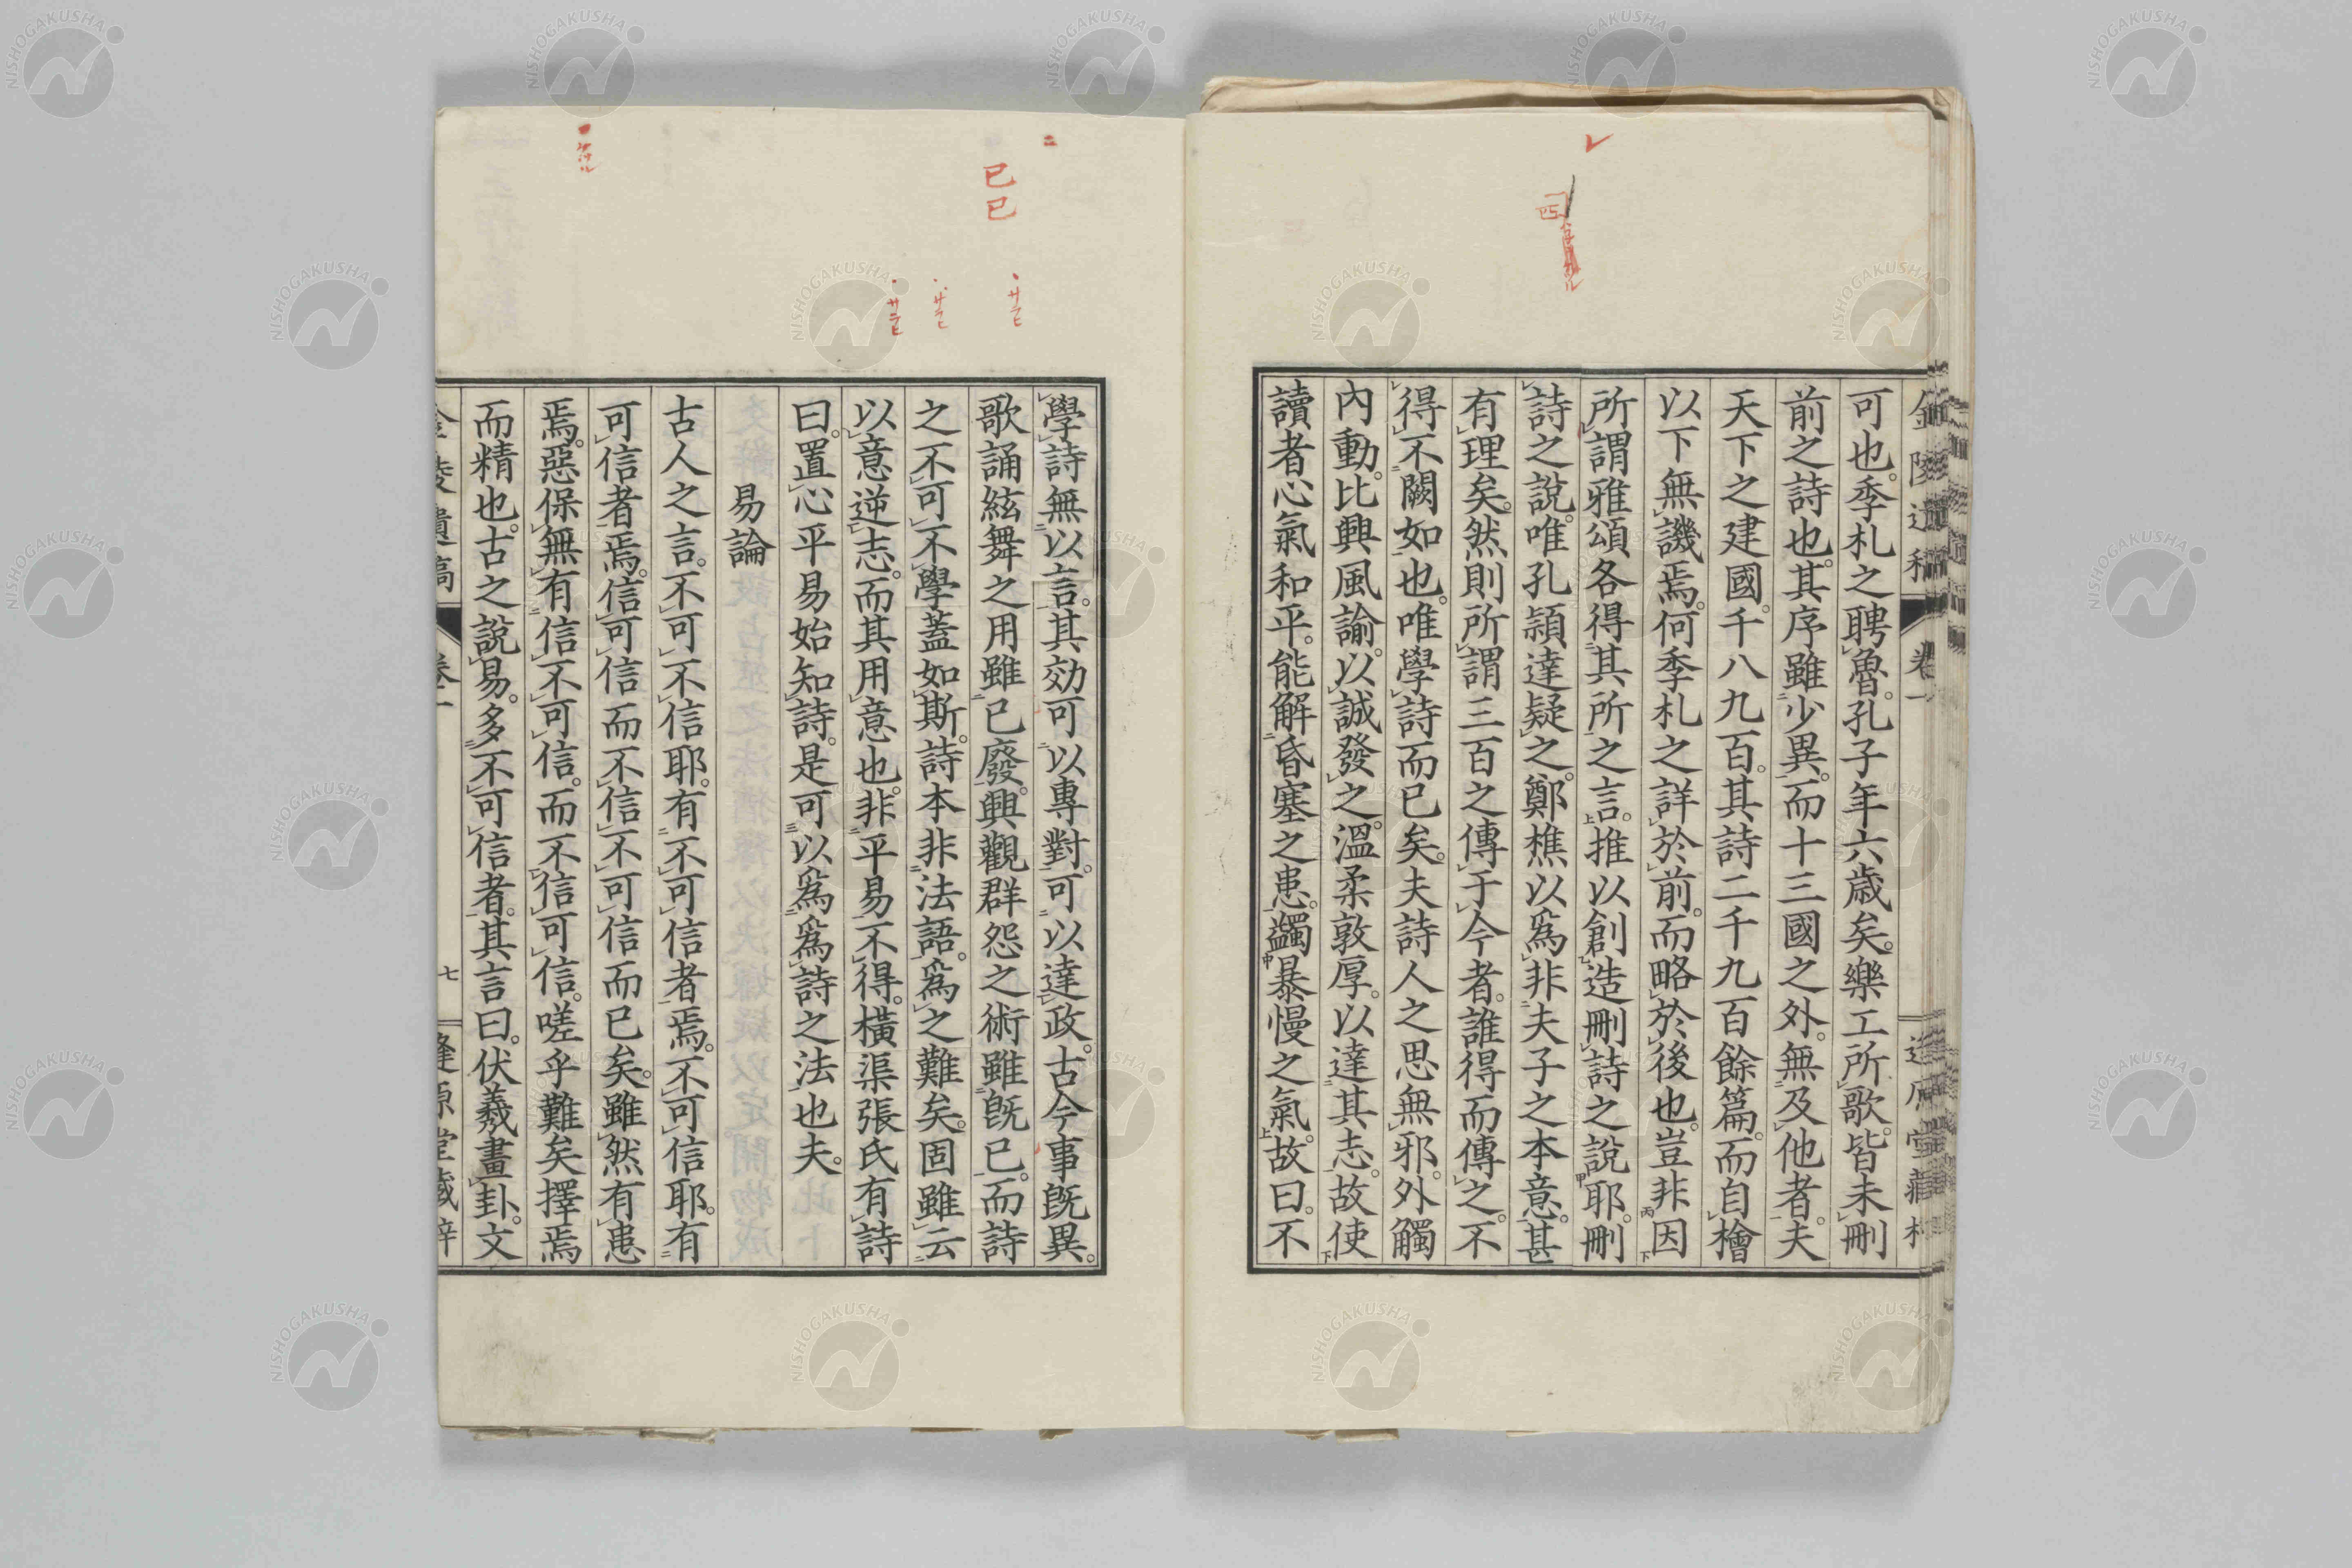 可也。季札之聘魯。孔子年六歳矣。樂工所歌。皆未刪
前之詩也。其序雖少異。而十三國之外。無及他者。夫
天下之建國。千八九百。其詩二千九百餘篇。而自檜
以下無譏焉。何季札之詳於前。而略於後也。豈非因
所謂雅頌各得其所之言。推以創造刪詩之說耶。刪
詩之說。唯孔頴達疑之。鄭樵以爲非夫子之本意。甚
有理矣。然則所謂三百之傳于今者。誰得而傳之。不
得不闕如也。唯學詩而已矣。夫詩人之思無邪。外觸
內動。比興風諭。以誠發之。溫柔敦厚。以達其志。故使
讀者心氣和平。能解昏塞之患。蠲暴慢之氣。故曰。不
學詩無以言。其効可以專對。可以達政。古今事既異。
歌誦絃舞之用雖已廢。興觀群怨之術雖既已。而詩
之不可不學蓋如斯。詩本非法語。爲之難矣。固雖云
以意逆志。而其用意也。非平易不得。橫渠張氏有詩
曰。置心平易始知詩。是可以爲爲詩之法也夫。
易論
古人之言。不可不信耶。有不可信者焉。不可信耶。有
可信者焉。信可信而不信不可信而已矣。雖然有患
焉。惡保無有信不可信。而不信可信。嗟乎難矣擇焉
而精也。古之說易。多不可信者。其言曰。伏羲畫卦。文
七
已
已
NISHOGAKUSHA